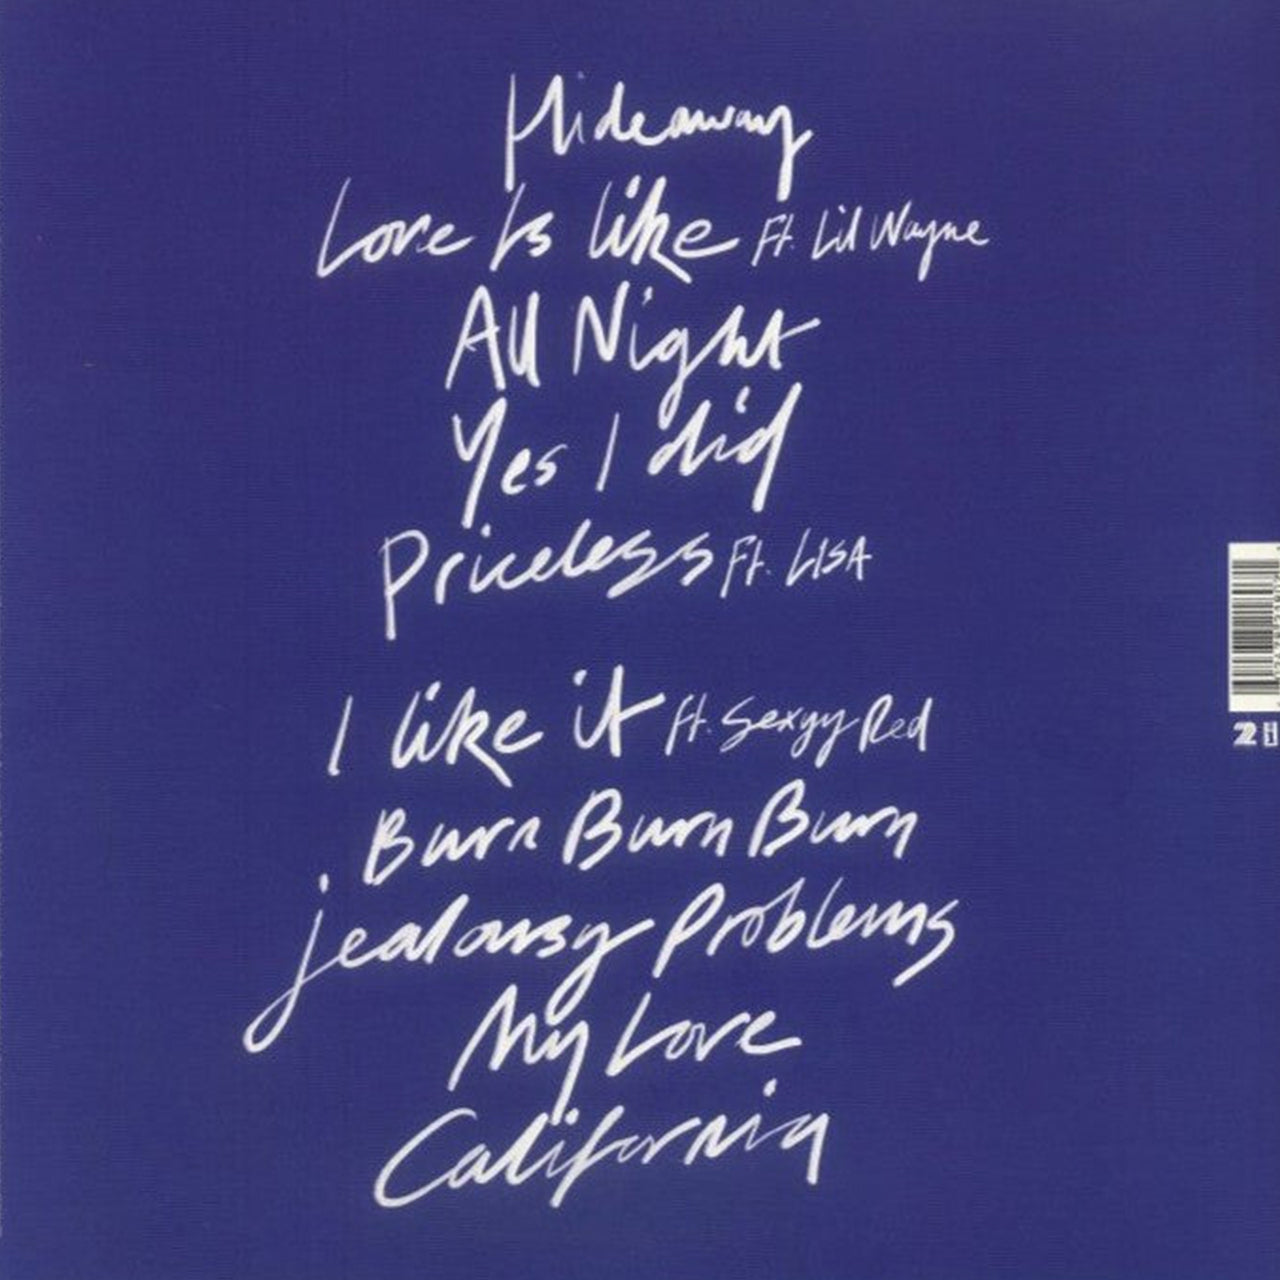 Hideaway
Love Is like Ft. Lil Wayne
All Night
Yes I did
Priceless Ft. LISA
I like it ft. Sexyy Red
Burn Burn Burn
jealousy Problems
My Love
California
2